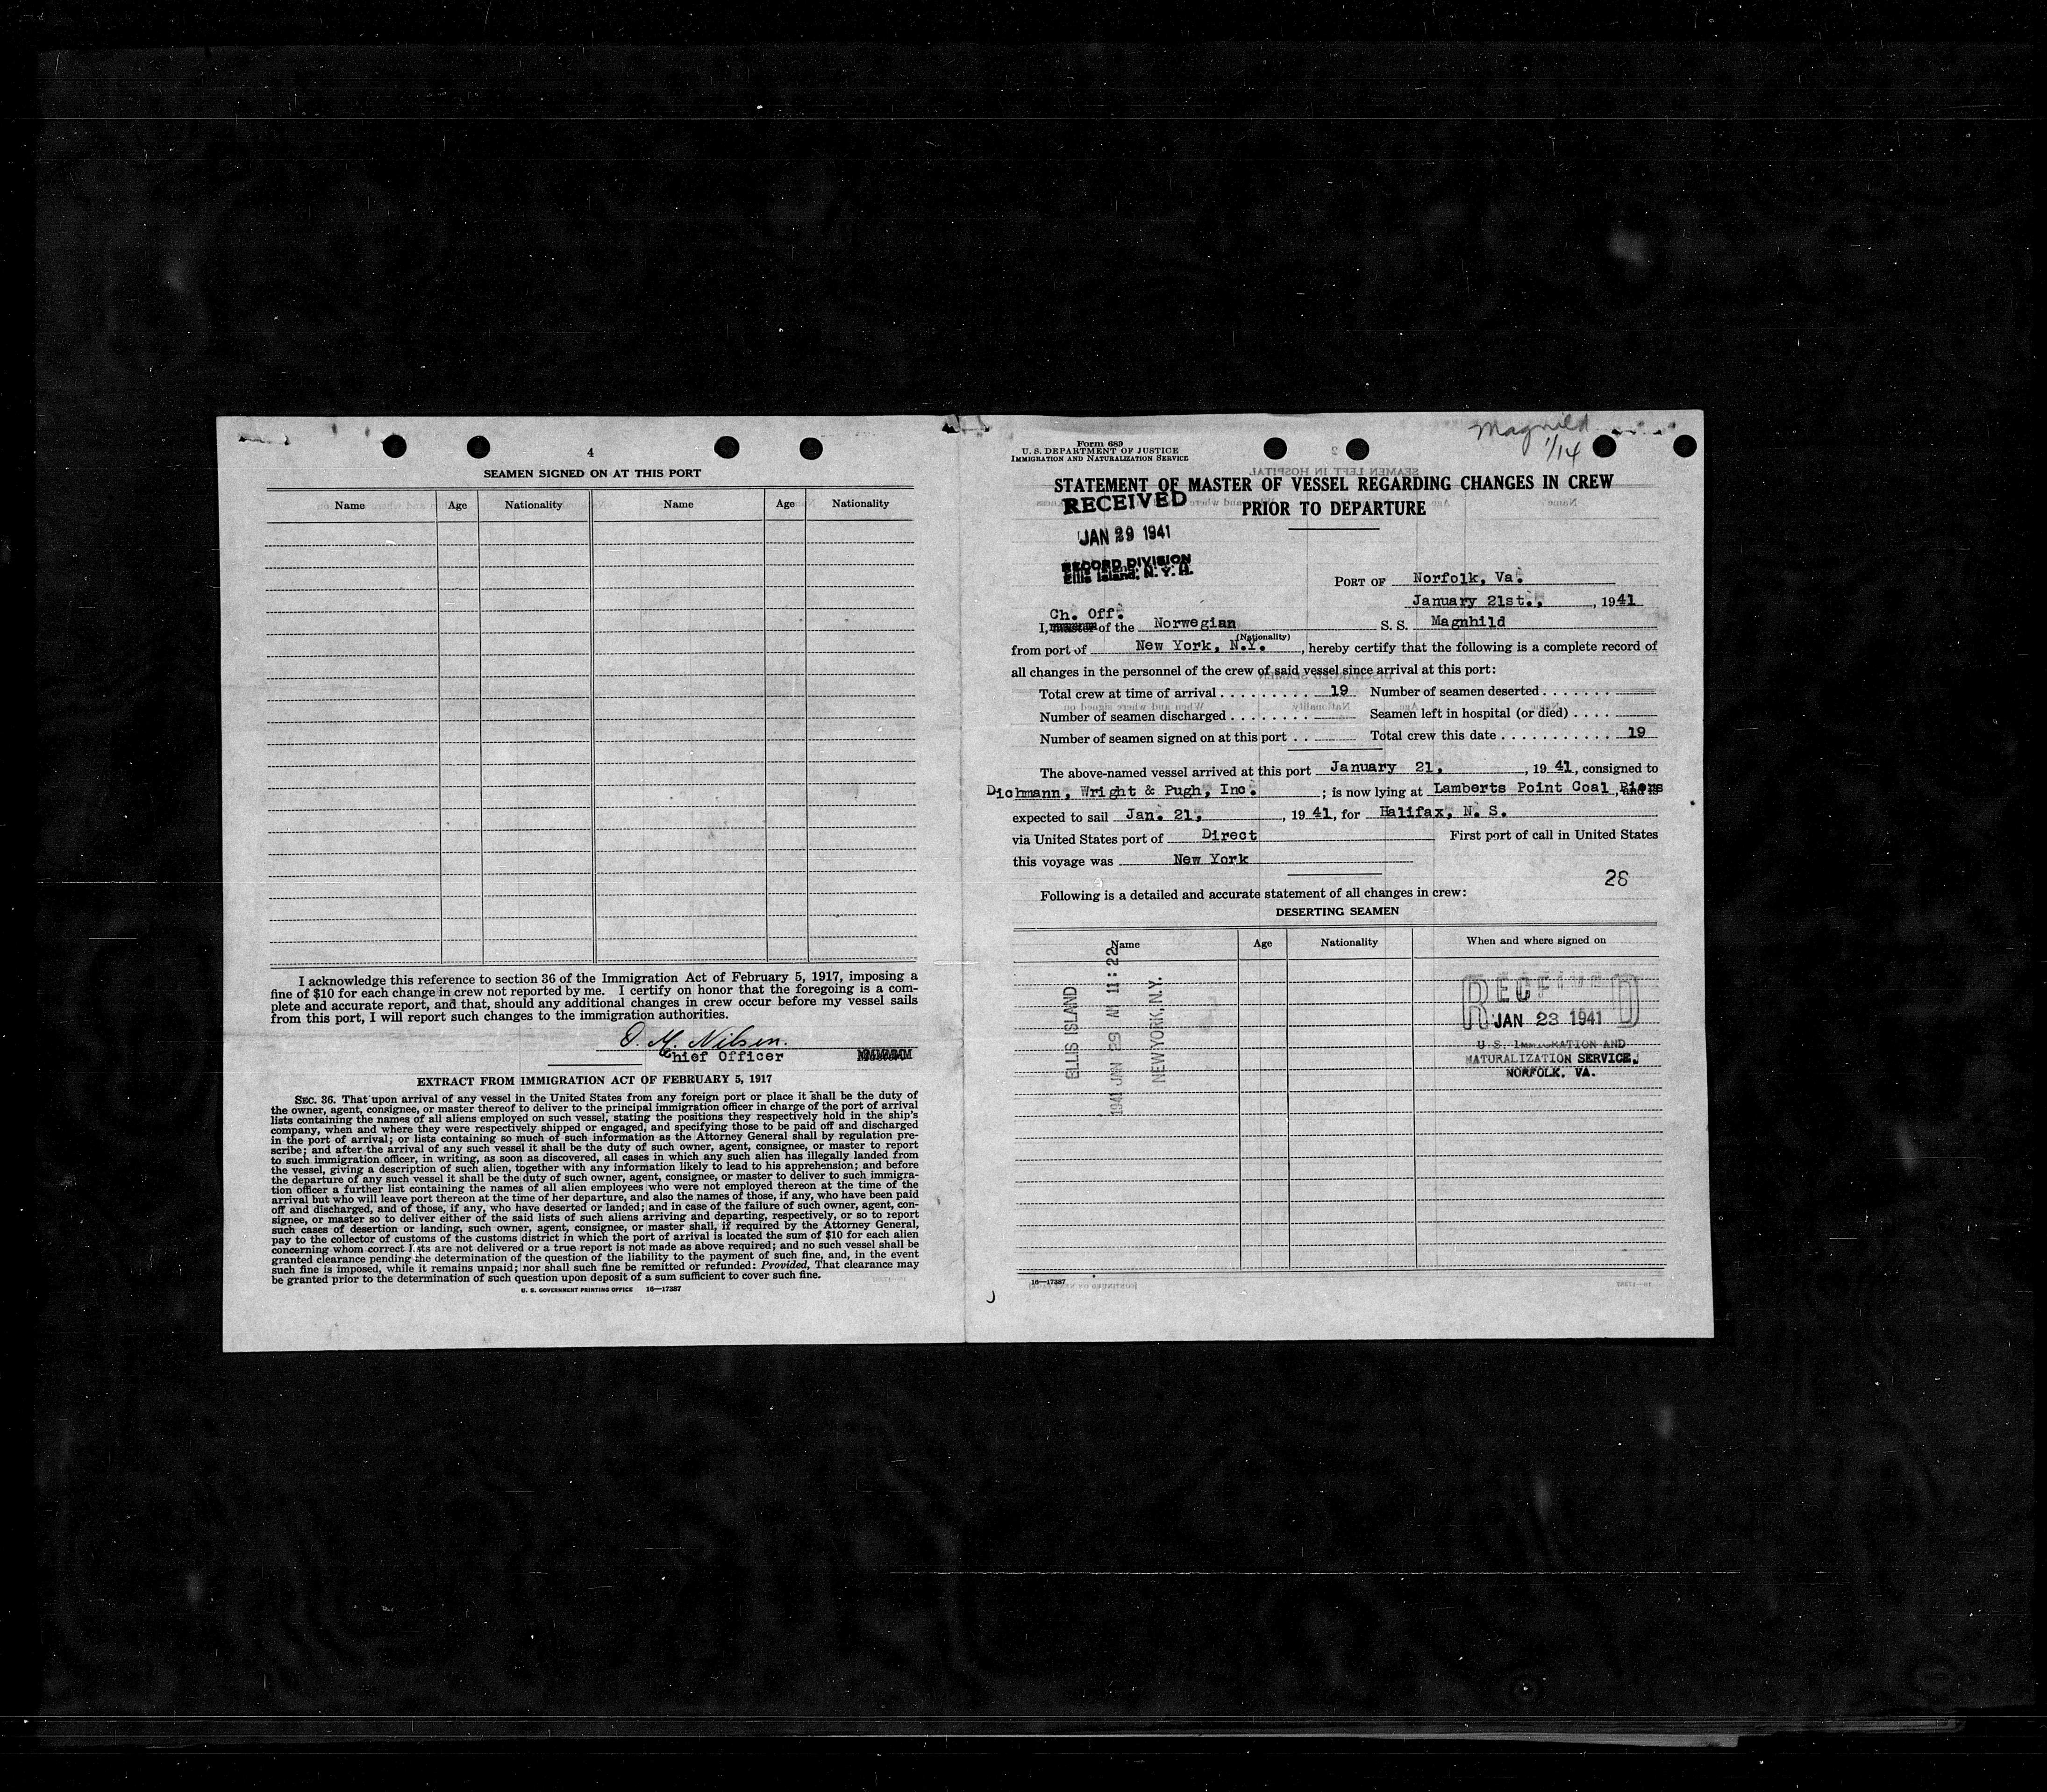 4
SEAMEN SIGNED ON AT THIS PORT
Name Age Nationality Name Age Nationality
I acknowledge this reference to section 36 of the Immigration Act of February 5, 1917, imposing a
fine of $10 for each change in crew not reported by me. I certify on honor that the foregoing is a com-
plete and accurate report, and that, should any additional changes in crew occur before my vessel sails
from this port, I will report such changes to the immigration authorities.
O. M. Nilsen.
Chief Officer
EXTRACT FROM IMMIGRATION ACT OF FEBRUARY 5, 1917
SEC. 36. That upon arrival of any vessel in the United States from any foreign port or place it shall be the duty of
the owner, agent, consignee, or master thereof to deliver to the principal immigration officer in charge of the port of arrival
lists containing the names of all aliens employed on such vessel, stating the positions they respectively hold in the ship's
company, when and where they were respectively shipped or engaged, and specifying those to be paid off and discharged
in the port of arrival; or lists containing so much of such information as the Attorney General shall by regulation pre-
scribe; and after the arrival of any such vessel it shall be the duty of such owner, agent, consignee, or master to report
to such immigration officer, in writing, as soon as discovered, all cases in which any such alien has illegally landed from
the vessel, giving a description of such alien, together with any information likely to lead to his apprehension; and before
the departure of any such vessel it shall be the duty of such owner, agent, consignee, or master to deliver to such immigra-
tion officer a further list containing the names of all alien employees who were not employed thereon at the time of the
arrival but who will leave port thereon at the time of her departure, and also the names of those, if any, who have been paid
off and discharged, and of those, if any, who have deserted or landed; and in case of the failure of such owner, agent, con-
signee, or master so to deliver either of the said lists of such aliens arriving and departing, respectively, or so to report
such cases of desertion or landing, such owner, agent, consignee, or master shall, if required by the Attorney General,
pay to the collector of customs of the customs district in which the port of arrival is located the sum of $10 for each alien
concerning whom correct lists are not delivered or a true report is not made as above required; and no such vessel shall be
granted clearance pending the determination of the question of the liability to the payment of such fine, and, in the event
such fine is imposed, while it remains unpaid; nor shall such fine be remitted or refunded: Provided, That clearance may
be granted prior to the determination of such question upon deposit of a sum sufficient to cover such fine.
U. S. GOVERNMENT PRINTING OFFICE 16—17387
Magnild
1/14
Form 689
U. S. DEPARTMENT OF JUSTICE
IMMIGRATION AND NATURALIZATION SERVICE
STATEMENT OF MASTER OF VESSEL REGARDING CHANGES IN CREW
PRIOR TO DEPARTURE
RECEIVED
JAN 29 1941
RECORD DIVISION
Ellis Island, N. Y. H.
PORT OF Norfolk, Va.
January 21st., , 1941
Ch. Off.
I, master of the Norwegian S. S. Magnhild
(Nationality)
from port of New York, N.Y. , hereby certify that the following is a complete record of
all changes in the personnel of the crew of said vessel since arrival at this port:
Total crew at time of arrival . . . . . . . . . 19 Number of seamen deserted . . . . . . .
Number of seamen discharged . . . . . . . . Seamen left in hospital (or died) . . . .
Number of seamen signed on at this port . . Total crew this date . . . . . . . . . . . 19
The above-named vessel arrived at this port January 21, , 1941, consigned to
Dichmann, Wright & Pugh, Inc. ; is now lying at Lamberts Point Coal Piers, and is
expected to sail Jan. 21, , 1941, for Halifax, N. S.
via United States port of Direct First port of call in United States
this voyage was New York
28
Following is a detailed and accurate statement of all changes in crew:
DESERTING SEAMEN
Name Age Nationality When and where signed on
ELLIS ISLAND
1941 JAN 29 AM 11:22
NEW YORK, N.Y.
RECEIVED
JAN 23 1941
U. S. IMMIGRATION AND
NATURALIZATION SERVICE,
NORFOLK, VA.
16—17387